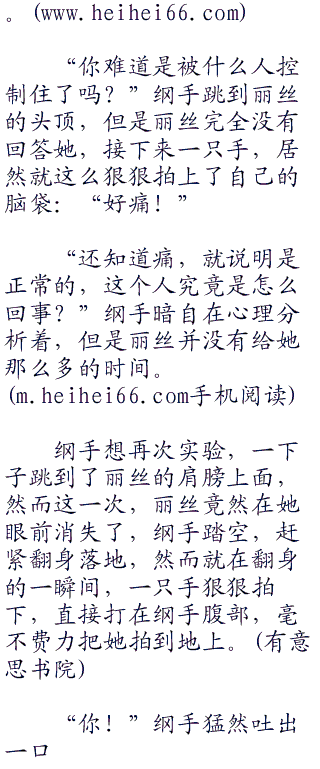 。(www.heihei66.com)
“你难道是被什么人控
制住了吗？”纲手跳到丽丝
的头顶，但是丽丝完全没有
回答她，接下来一只手，居
然就这么狠狠拍上了自己的
脑袋：“好痛！”
“还知道痛，就说明是
正常的，这个人究竟是怎么
回事？”纲手暗自在心理分
析着，但是丽丝并没有给她
那么多的时间。
(m.heihei66.com手机阅读)
纲手想再次实验，一下
子跳到了丽丝的肩膀上面，
然而这一次，丽丝竟然在她
眼前消失了，纲手踏空，赶
紧翻身落地，然而就在翻身
的一瞬间，一只手狠狠拍
下，直接打在纲手腹部，毫
不费力把她拍到地上。(有意
思书院)
“你！”纲手猛然吐出
一口